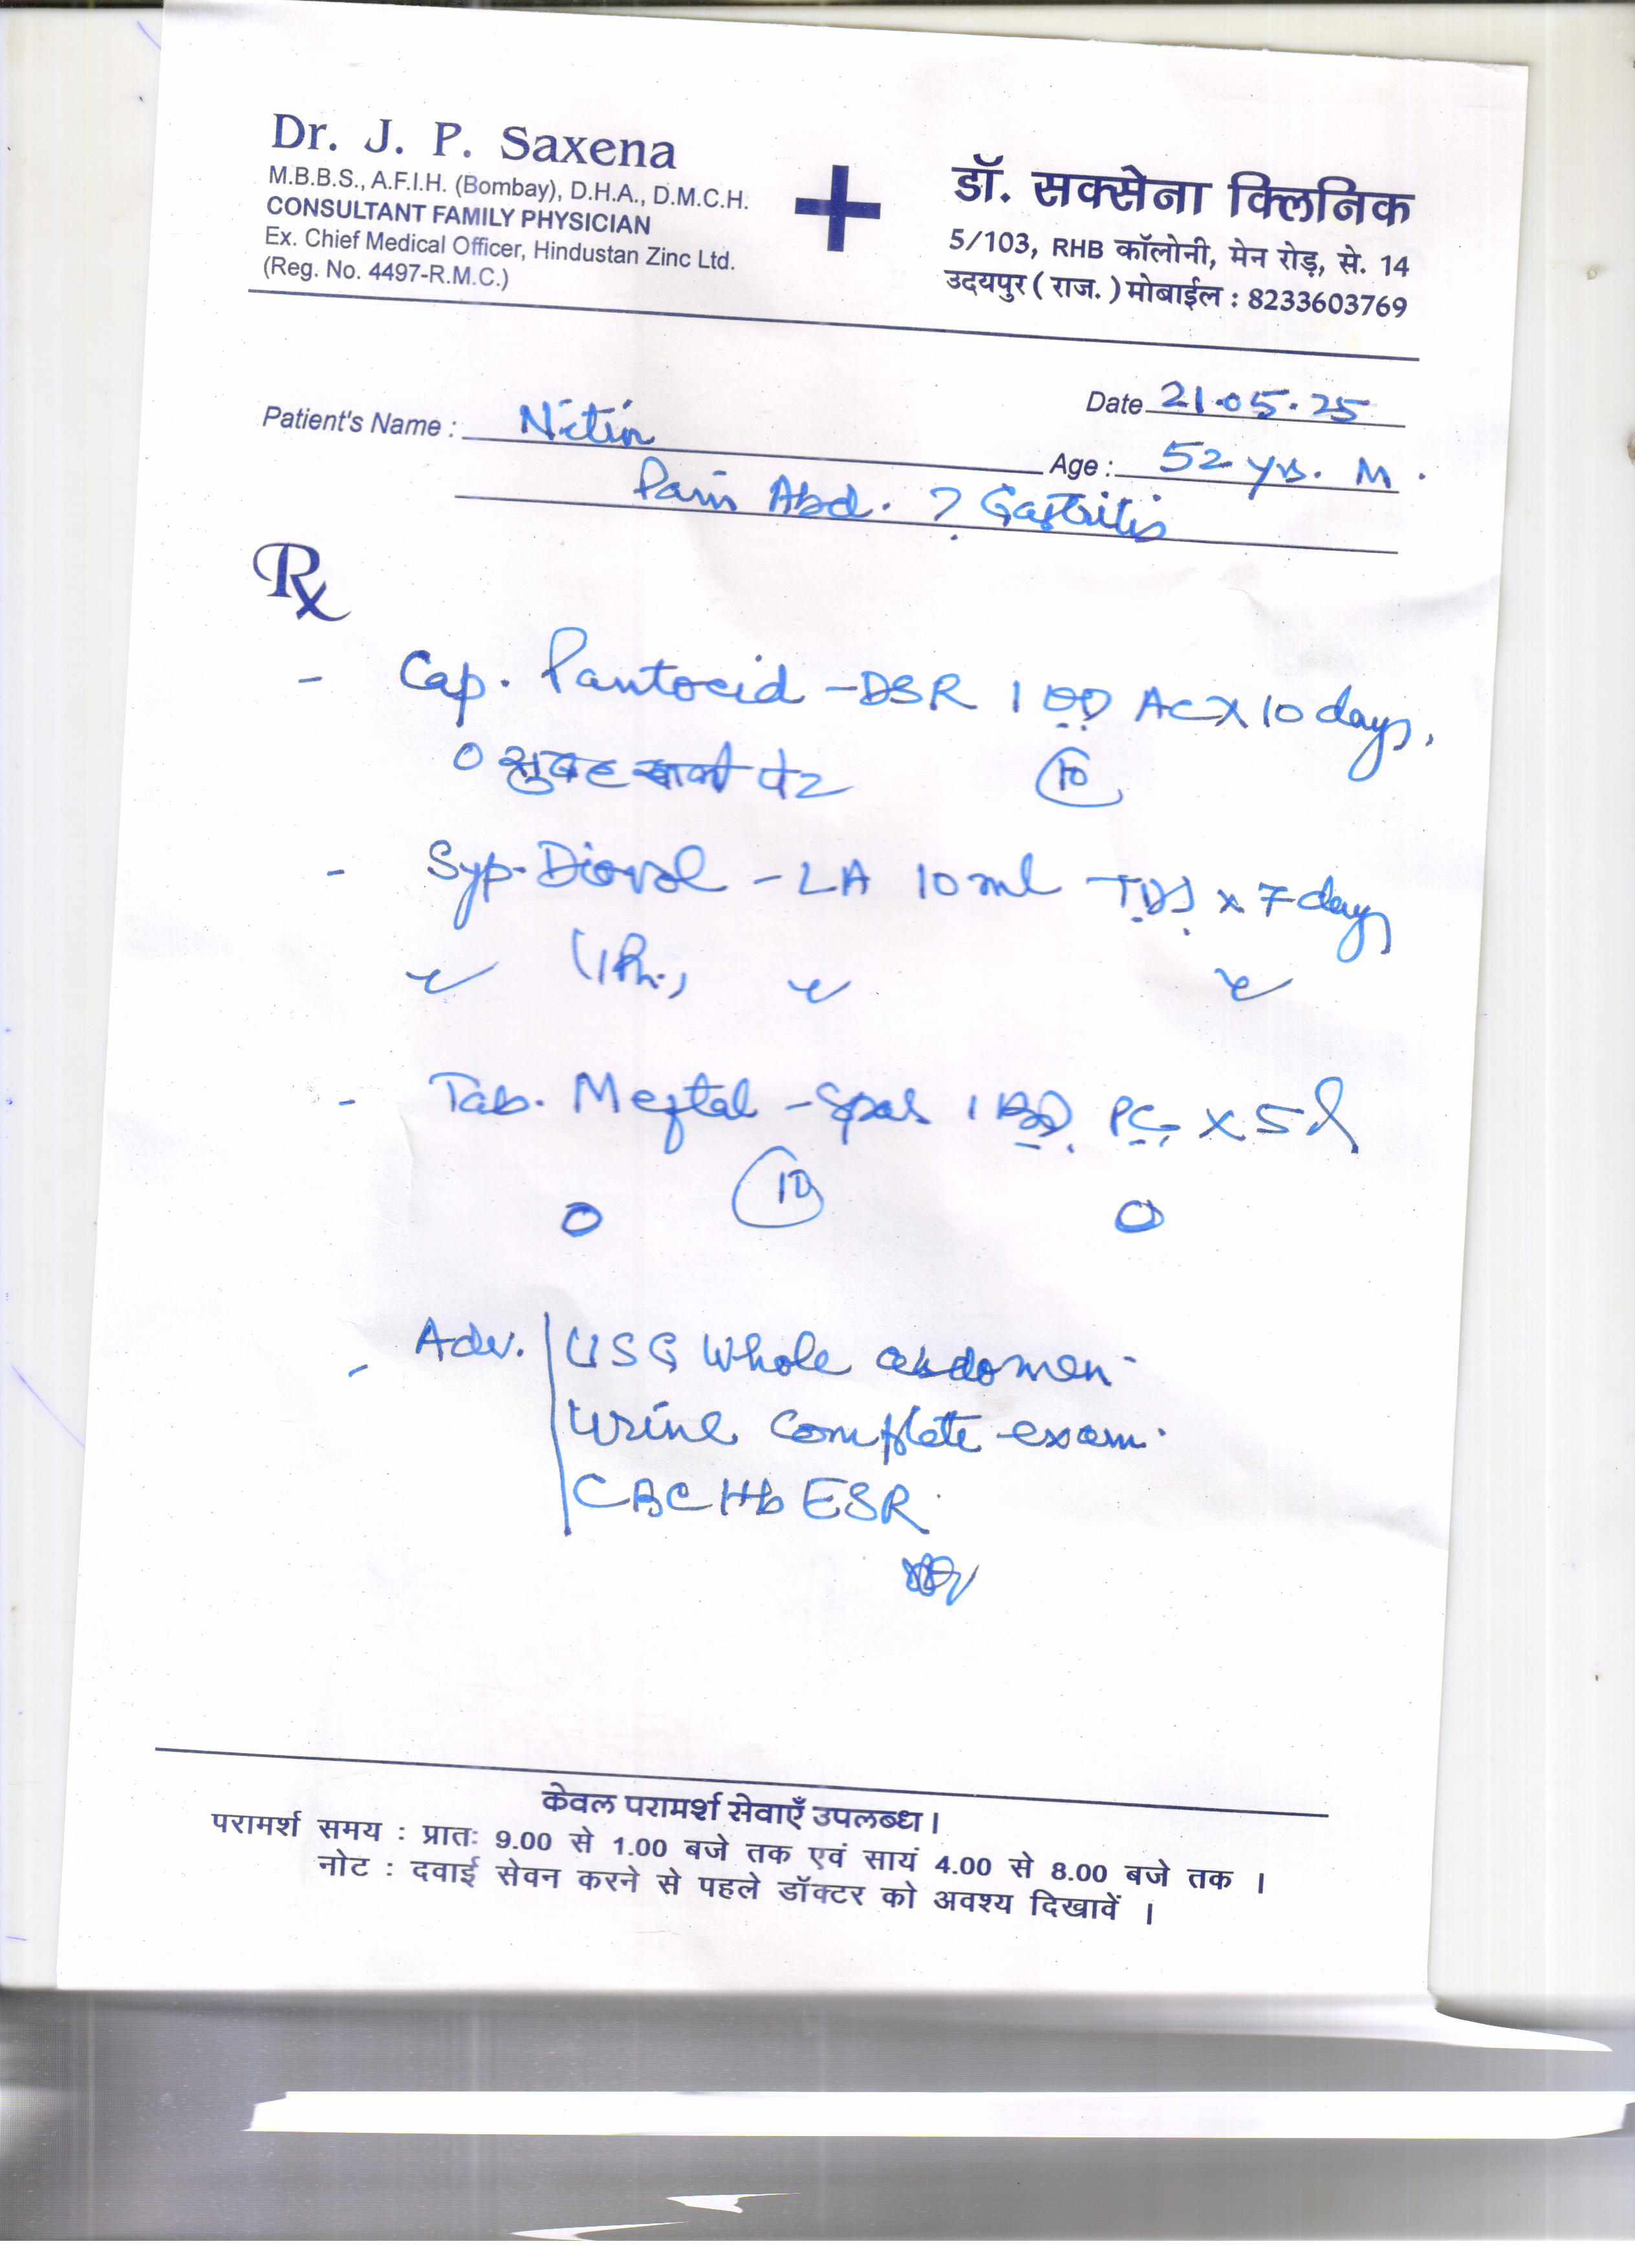 Dr. J. P. Saxena
M.B.B.S., A.F.I.H. (Bombay), D.H.A., D.M.C.H.
CONSULTANT FAMILY PHYSICIAN
Ex. Chief Medical Officer, Hindustan Zinc Ltd.
(Reg. No. 4497-R.M.C.)
डॉ. सक्सेना क्लिनिक
5/103, RHB कॉलोनी, मेन रोड़, से. 14
उदयपुर ( राज. ) मोबाईल : 8233603769
Date 21.05.25
Patient's Name : Nitin
Age : 52 yrs. M.
Pain Abd. ? Gastritis
Rx
- Cap. Pantocid - DSR 1 OD AC x 10 days.
0 सुबह खाली पेट 10
- Syp. Diovol - LA 10 ml TDS x 7 days
(1Ph.)
- Tab. Meftal - Spas 1 BD. PC, x 5 d
10
0 0
- Adv. USG Whole abdomen
Urine Complete exam.
CBC Hb ESR.
केवल परामर्श सेवाएँ उपलब्ध।
परामर्श समय : प्रातः 9.00 से 1.00 बजे तक एवं सायं 4.00 से 8.00 बजे तक ।
नोट : दवाई सेवन करने से पहले डॉक्टर को अवश्य दिखावें ।